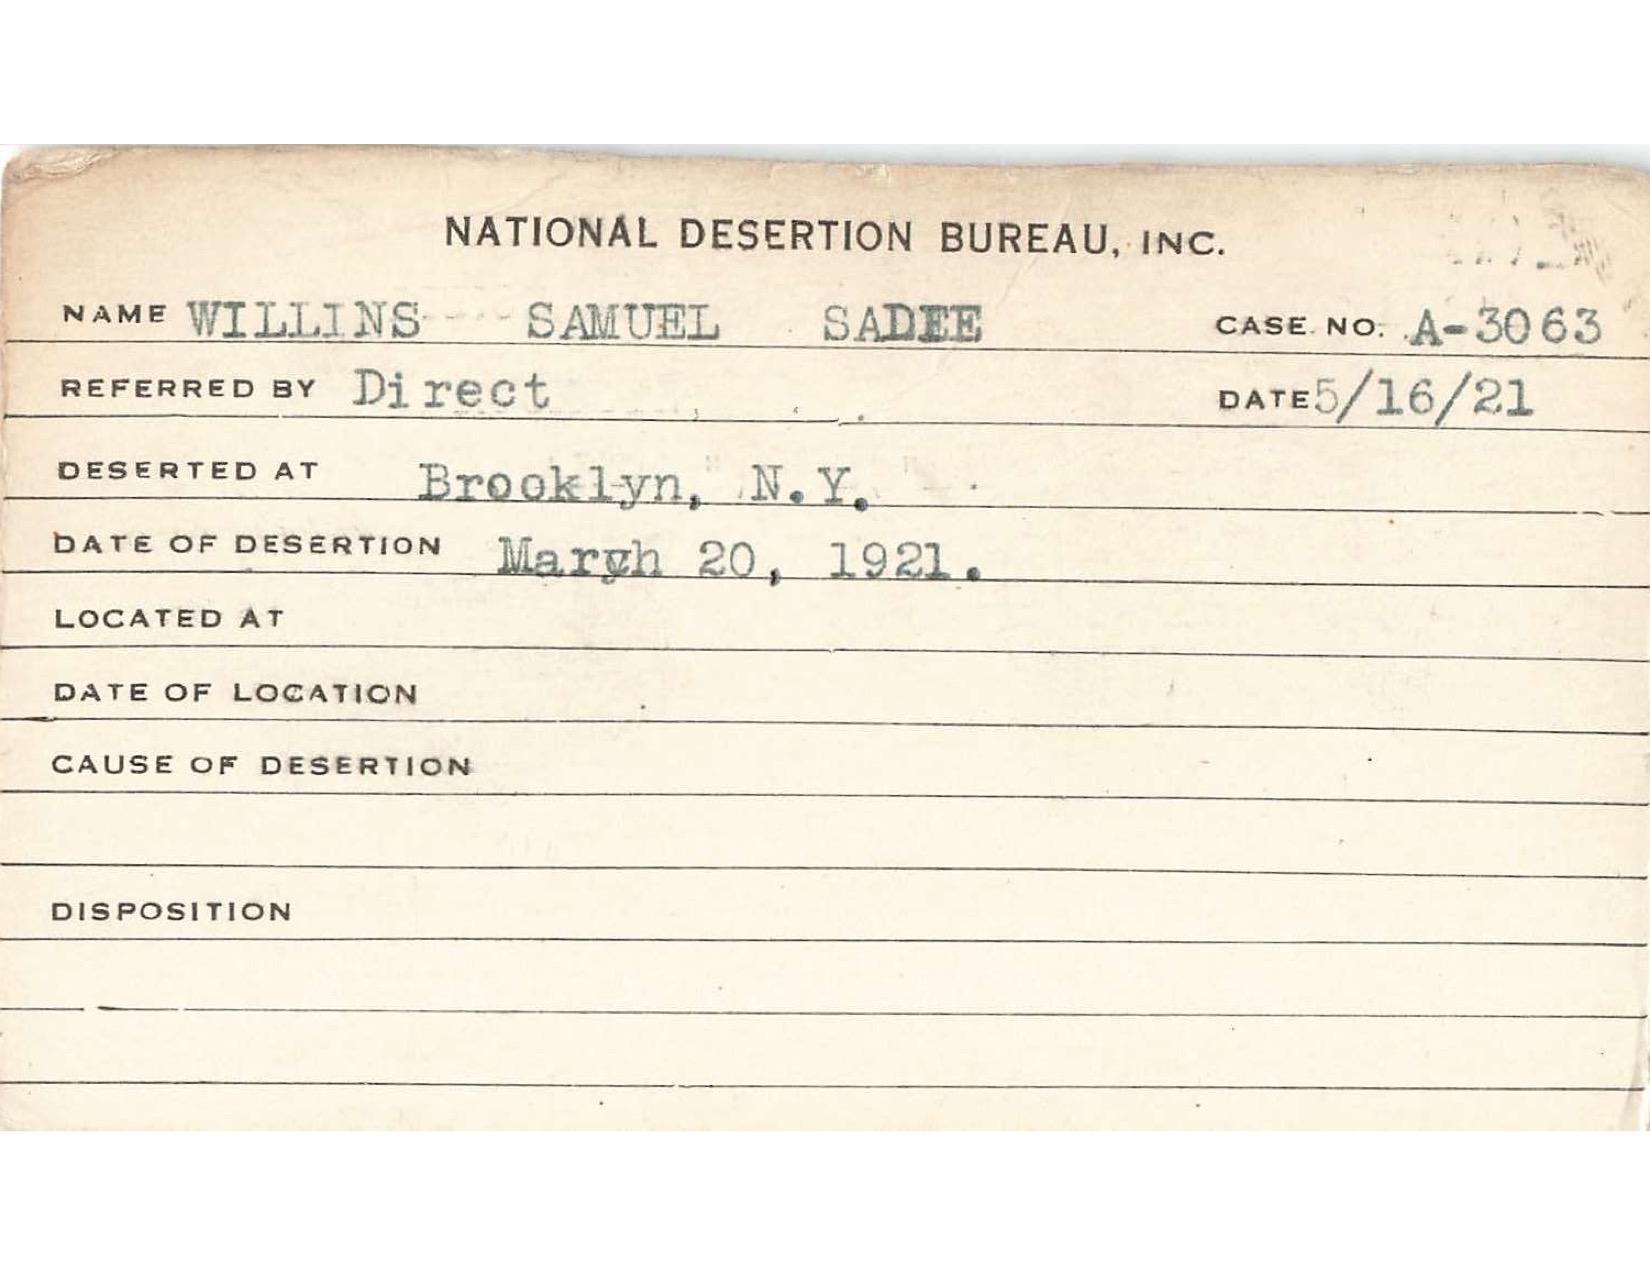 NATIONAL DESERTION BUREAU, INC.
NAME WILLINS SAMUEL SADEE CASE NO. A-3063
REFERRED BY Direct DATE 5/16/21
DESERTED AT Brooklyn, N.Y.
DATE OF DESERTION March 20, 1921.
LOCATED AT
DATE OF LOCATION
CAUSE OF DESERTION
DISPOSITION